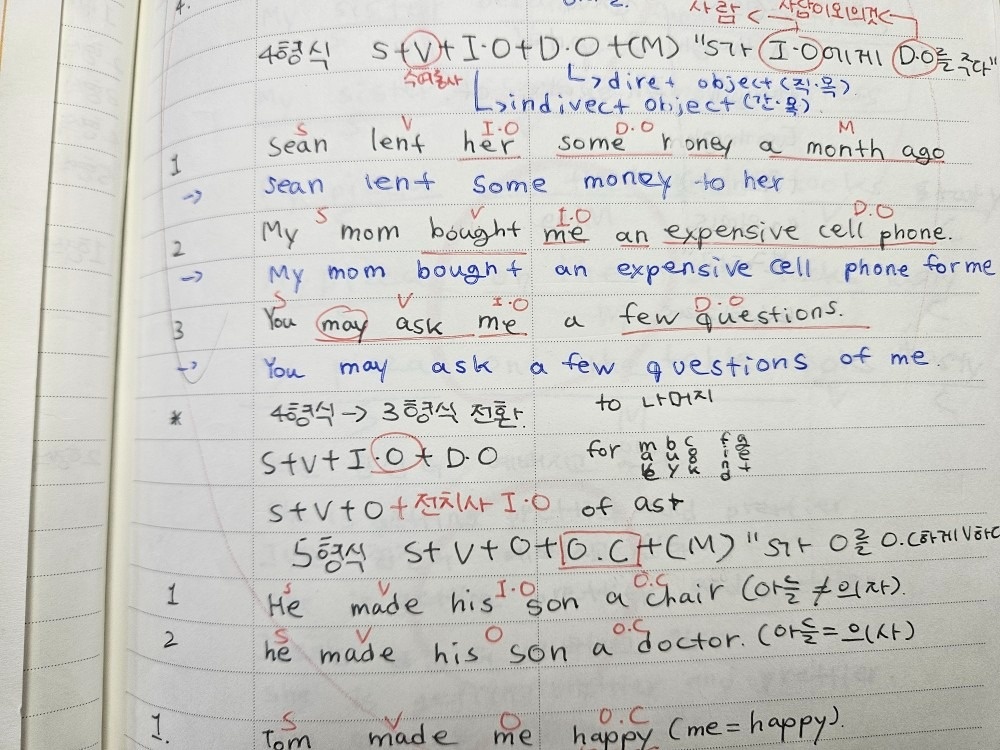 4.
사람 < 사람이외의것<
4형식 S+V+I·O+D·O+(M) "S가 I·O에게 D·O를 주다"
수여동사 ↳diret object(직·목)
↳indivect object(간·목)
S V I·O D·O M
1 Sean lent her some money a month ago
→ Sean lent some money to her
S V I·O D·O
2 My mom bought me an expensive cell phone.
→ My mom bought an expensive cell phone for me
S V I·O D·O
3 You may ask me a few questions.
→ You may ask a few questions of me.
* 4형식→3형식 전환. to 나머지
S+V+I·O+D·O for make buy cook find get
S+V+O+전치사 I·O of ask
5형식 S+V+O+O.C+(M) "S가 O를 O.C하게V하
S V I·O O.C
1 He made his son a chair (아들≠의자).
S V O O.C
2 he made his son a doctor. (아들=의사)
S V O O.C
1. Tom made me happy (me=happy).